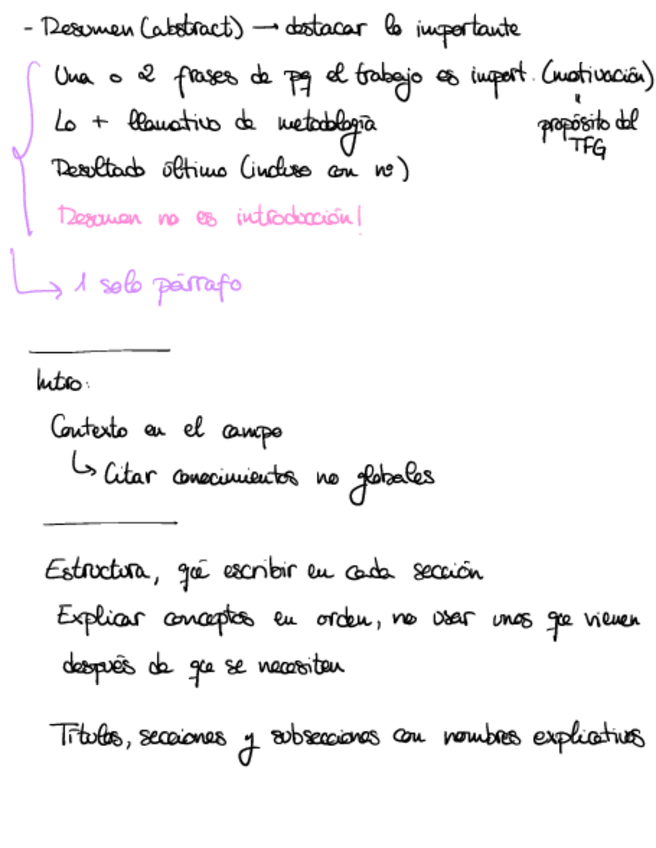 - Resumen (abstract) → destacar lo importante
Una o 2 frases de pq el trabajo es import. (motivación)
"
propósito del
TFG
Lo + llamativo de metodología
Resultado último (incluso con nº)
Resumen no es introducción!
↳ 1 solo párrafo
Intro:
Contexto en el campo
↳ Citar conocimientos no globales
Estructura, qué escribir en cada sección
Explicar conceptos en orden, no usar unos que vienen
después de que se necesiten
Títulos, secciones y subsecciones con nombres explicativos